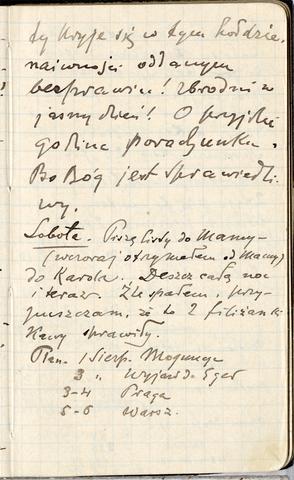 ty kryje się w tym hołdzie,
naiwności odłanym
bezprawiu! Zbrodni w
jasny dzień! O przyjdzie
godzina porachunku.
Bo Bóg jest sprawiedli
wy.
Sobota. Piszę listy do Mamy –
(wczoraj otrzymałem od Mamy)
do Karola. Deszcz całą noc
i teraz. Źle spałem, przy-
puszczam, że to 2 filiżanki
Kawy sprawiły.
Plan. 1 Sierp. Moguncja
3 " Wyjazd do Eger
3–4 Praga
5–6 Warsz.